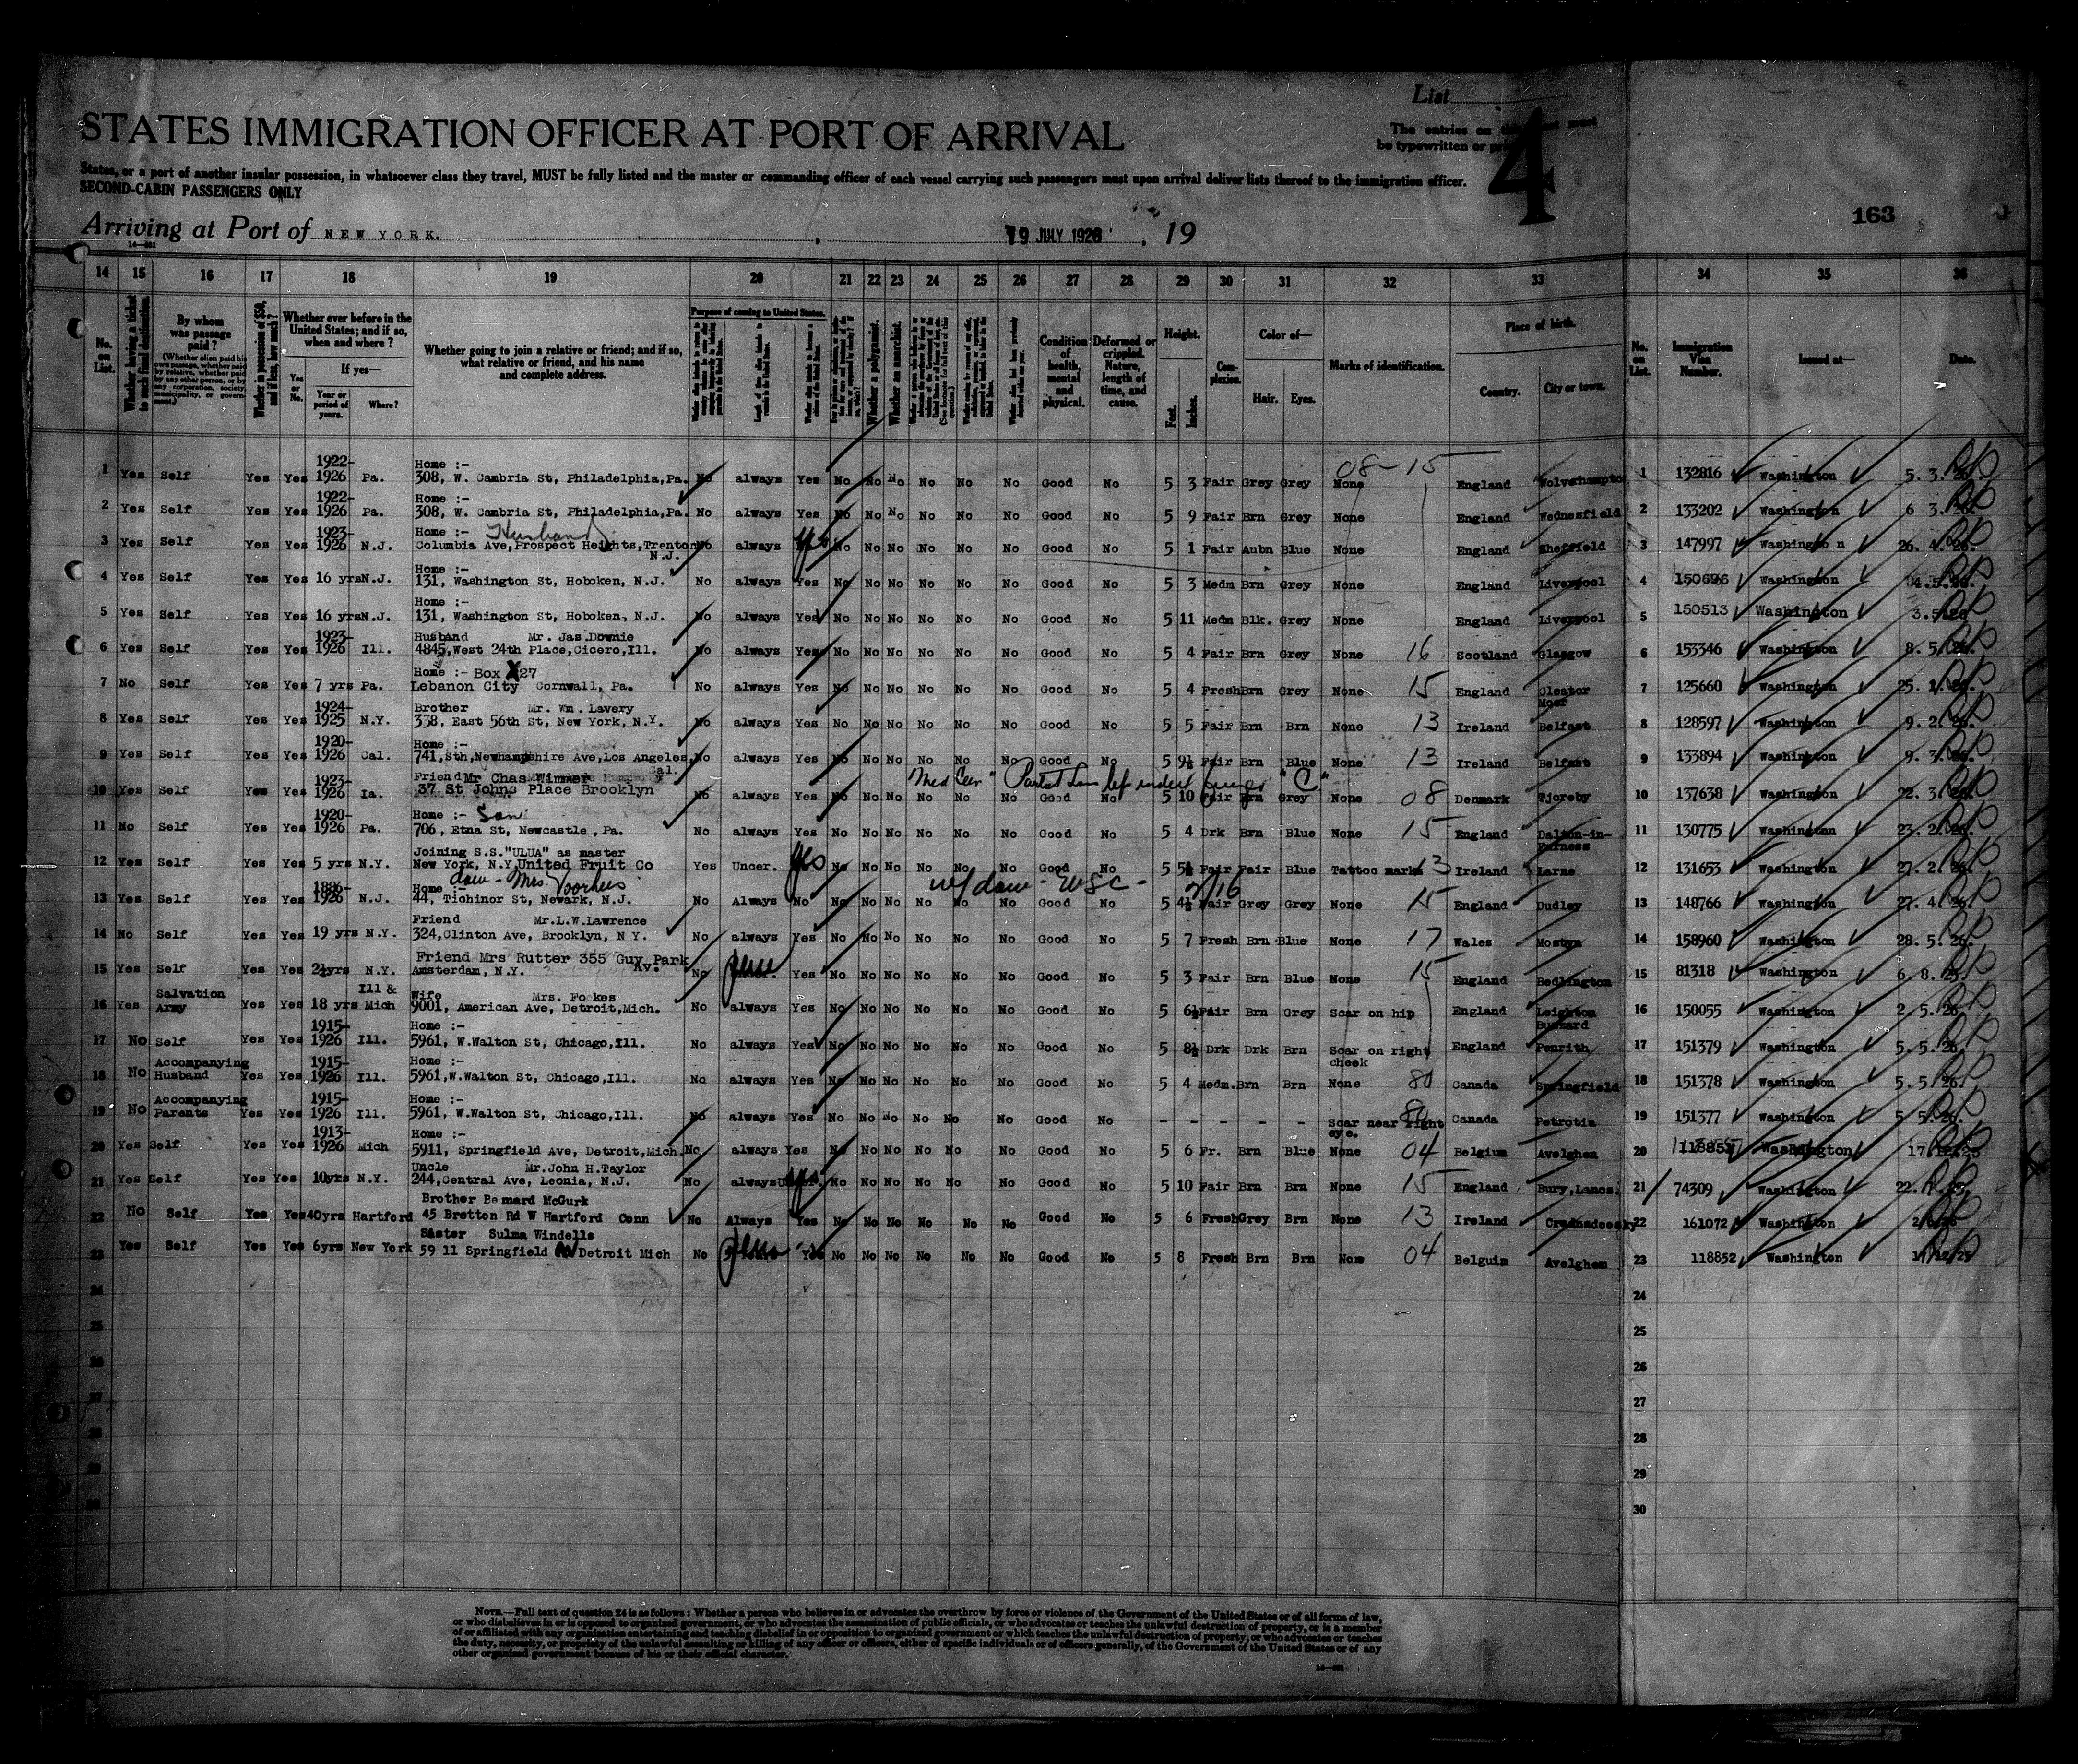 List
STATES IMMIGRATION OFFICER AT PORT OF ARRIVAL
4
The entries on must
be typewritten or
States, or a port of another insular possession, in whatsoever class they travel, MUST be fully listed and the master or commanding officer of each vessel carrying such passengers must upon arrival deliver lists thereof to the immigration officer.
SECOND-CABIN PASSENGERS ONLY
163
Arriving at Port of NEW YORK. , 19 JULY 1926 , 19
14 15 16 17 18 19 20 21 22 23 24 25 26 27 28 29 30 31 32 33 34 35 36
No. on List.
Whether having a ticket to such final destination.
By whom was passage paid?
(Whether alien paid his own passage, whether paid by relative, whether paid by any other person, or by any corporation, society, municipality, or government.)
Whether in possession of $50, and if less, how much?
Whether ever before in the United States; and if so, when and where?
If yes—
Yes or No.
Year or period of years.
Where?
Whether going to join a relative or friend; and if so, what relative or friend, and his name and complete address.
Purpose of coming to United States.
Whether a polygamist.
Whether an anarchist.
Condition of health, mental and physical.
Deformed or crippled. Nature, length of time, and cause.
Height.
Feet. Inches.
Complexion.
Color of—
Hair. Eyes.
Marks of identification.
Place of birth.
Country. City or town.
No. on List.
Immigration Visa Number.
Issued at—
Date.
08-15
1 Yes Self Yes Yes 1922-1926 Pa. Home :- 308, W. Cambria St, Philadelphia,Pa. No always Yes No No No No No No Good No 5 3 Fair Grey Grey None England Wolverhampto 1 132816 Washington 5. 3. 26.
2 Yes Self Yes Yes 1922-1926 Pa. Home :- 308, W. Cambria St, Philadelphia,Pa. No always Yes No No No No No No Good No 5 9 Fair Brn Grey None England Wednesfield 2 133202 Washington 6 3.
3 Yes Self Yes Yes 1923-1926 N.J. Home :- Husband Columbia Ave,Prospect Heights,Trenton N.J. No always Yes No No No No No No Good No 5 1 Fair Aubn Blue None England Sheffield 3 147997 Washington 26. 4. 26.
4 Yes Self Yes Yes 16 yrs N.J. Home :- 131, Washington St, Hoboken, N.J. No always Yes No No No No No No Good No 5 3 Medm Brn Grey None England Liverpool 4 150696 Washington
5 Yes Self Yes Yes 16 yrs N.J. Home :- 131, Washington St, Hoboken, N.J. No always Yes No No No No No No Good No 5 11 Medm Blk. Grey None England Liverpool 5 150513 Washington 3.5.26
6 Yes Self Yes Yes 1923-1926 Ill. Husband Mr. Jas.Downie 4845,West 24th Place,Cicero,Ill. No always Yes No No No No No No Good No 5 4 Fair Brn Grey None 16 Scotland Glasgow 6 153346 Washington 8. 5.
7 No Self Yes Yes 7 yrs Pa. Home :- Box X27 Lebanon City Cornwall, Pa. No always Yes No No No No No No Good No 5 4 Fresh Brn Grey None 15 England Cleator Moor 7 125660 Washington 25. 1.
8 Yes Self Yes Yes 1924-1925 N.Y. Brother Mr. Wm. Lavery 338, East 56th St, New York, N.Y. No always Yes No No No No No No Good No 5 5 Fair Brn Brn None 13 Ireland Belfast 8 128597 Washington 9. 2.
9 Yes Self Yes Yes 1920-1926 Cal. Home :- 741,Sth,Newhampshire Ave,Los Angeles, Cal. No always Yes No No No No No No Good No 5 9½ Fair Brn Blue None 13 Ireland Belfast 9 133894 Washington 9. 3.
10 Yes Self Yes Yes 1923-1926 Ia. Friend Mr Chas Wimmer 37 St Johns Place Brooklyn No always Yes No Med Cer Good No 5 10 Fair Brn Grey None 08 Denmark Tjoreby 10 137638 Washington 22. 3.
11 No Self Yes Yes 1920-1926 Pa. Home :- Son 706, Etna St, Newcastle, Pa. No always Yes No No No No No No Good No 5 4 Drk Brn Blue None 15 England Dalton-in-Furness 11 130775 Washington 23. 2.
12 Yes Self Yes Yes 5 yrs N.Y. Joining S.S."ULUA" as master New York, N.Y. United Fruit Co Yes Uncer. Yes No No No No No No Good No 5 5½ Fair Fair Blue Tattoo marks 13 Ireland Larne 12 131653 Washington 27. 2.
13 Yes Self Yes Yes 1886-1926 N.J. Home :- dau - Mrs Voorhees 44, Tichinor St, Newark, N.J. No Always No No No No No No No Good No w/ dau - WSC - 7/16 5 4½ Fair Grey Grey None 15 England Dudley 13 148766 Washington 27. 4.
14 No Self Yes Yes 19 yrs N.Y. Friend Mr.L.W.Lawrence 324,Clinton Ave, Brooklyn, N Y. No always Yes No No No No No No Good No 5 7 Fresh Brn Blue None 17 Wales Mostyn 14 158960 Washington 28. 5. 26.
15 Yes Self Yes Yes 2½yrs N.Y. Friend Mrs Rutter 355 Guy Park Av. Amsterdam, N.Y. No Yes No No No No No No Good No 5 3 Fair Brn Blue None 15 England Bedlington 15 81318 Washington 6. 8. 25.
16 Yes Salvation Army Yes Yes 18 yrs Ill & Mich Wife Mrs. Foakes 9001, American Ave, Detroit,Mich. No always Yes No No No No No No Good No 5 6½ Fair Brn Grey Scar on hip England Leighton Buzzard 16 150055 Washington 2. 5. 26.
17 No Self Yes Yes 1915-1926 Ill. Home :- 5961, W.Walton St, Chicago,Ill. No always Yes No No No No No No Good No 5 8½ Drk Drk Brn Scar on right cheek England Penrith 17 151379 Washington 5. 5. 26.
18 No Accompanying Husband Yes Yes 1915-1926 Ill. Home :- 5961,W.Walton St, Chicago,Ill. No always Yes No No No No No No Good No 5 4 Medm. Brn Brn None 80 Canada Springfield 18 151378 Washington 5. 5 26.
19 No Accompanying Parents Yes Yes 1915-1926 Ill. Home :- 5961, W.Walton St, Chicago,Ill. No always Yes No No No No No No Good No - - - - - Scar near right eye. 80 Canada Petrolia 19 151377 Washington 5 5. 26.
20 Yes Self Yes Yes 1913-1926 Mich Home :- 5911, Springfield Ave, Detroit,Mich. No always Yes No No No No No No Good No 5 6 Fr. Brn Blue None 04 Belgium Avelghem 20 118853 Washington 17.12.25
21 Yes Self Yes Yes 10yrs N.Y. Uncle Mr.John H.Taylor 244,Central Ave, Leonia, N.J. No always Yes No No No No No No Good No 5 10 Fair Brn Brn None 15 England Bury,Lancs. 21 74309 Washington 22. 7. 25.
22 No Self Yes Yes 40yrs Hartford Brother Bernard McGurk 45 Bretton Rd W Hartford Conn No Always Yes No No No No No No Good No 5 6 Fresh Grey Brn None 13 Ireland 22 161072 Washington
23 Yes Self Yes Yes 6yrs New York Sister Sulma Windells 59 11 Springfield Av Detroit Mich No Yes No No No No No No Good No 5 8 Fresh Brn Brn None 04 Belguim Avelghem 23 118852 Washington 17/12/25
24 24
25 25
26 26
27 27
28 28
29 29
30 30
NOTE.—Full text of question 24 is as follows: Whether a person who believes in or advocates the overthrow by force or violence of the Government of the United States or of all forms of law,
or who disbelieves in or is opposed to organized government, or who advocates the assassination of public officials, or who advocates or teaches the unlawful destruction of property, or is a member
of or affiliated with any organization entertaining and teaching disbelief in or opposition to organized government or which teaches the unlawful destruction of property, or who advocates or teaches
the duty, necessity, or propriety of the unlawful assaulting or killing of any officer or officers, either of specific individuals or of officers generally, of the Government of the United States or of any
other organized government because of his or their official character.